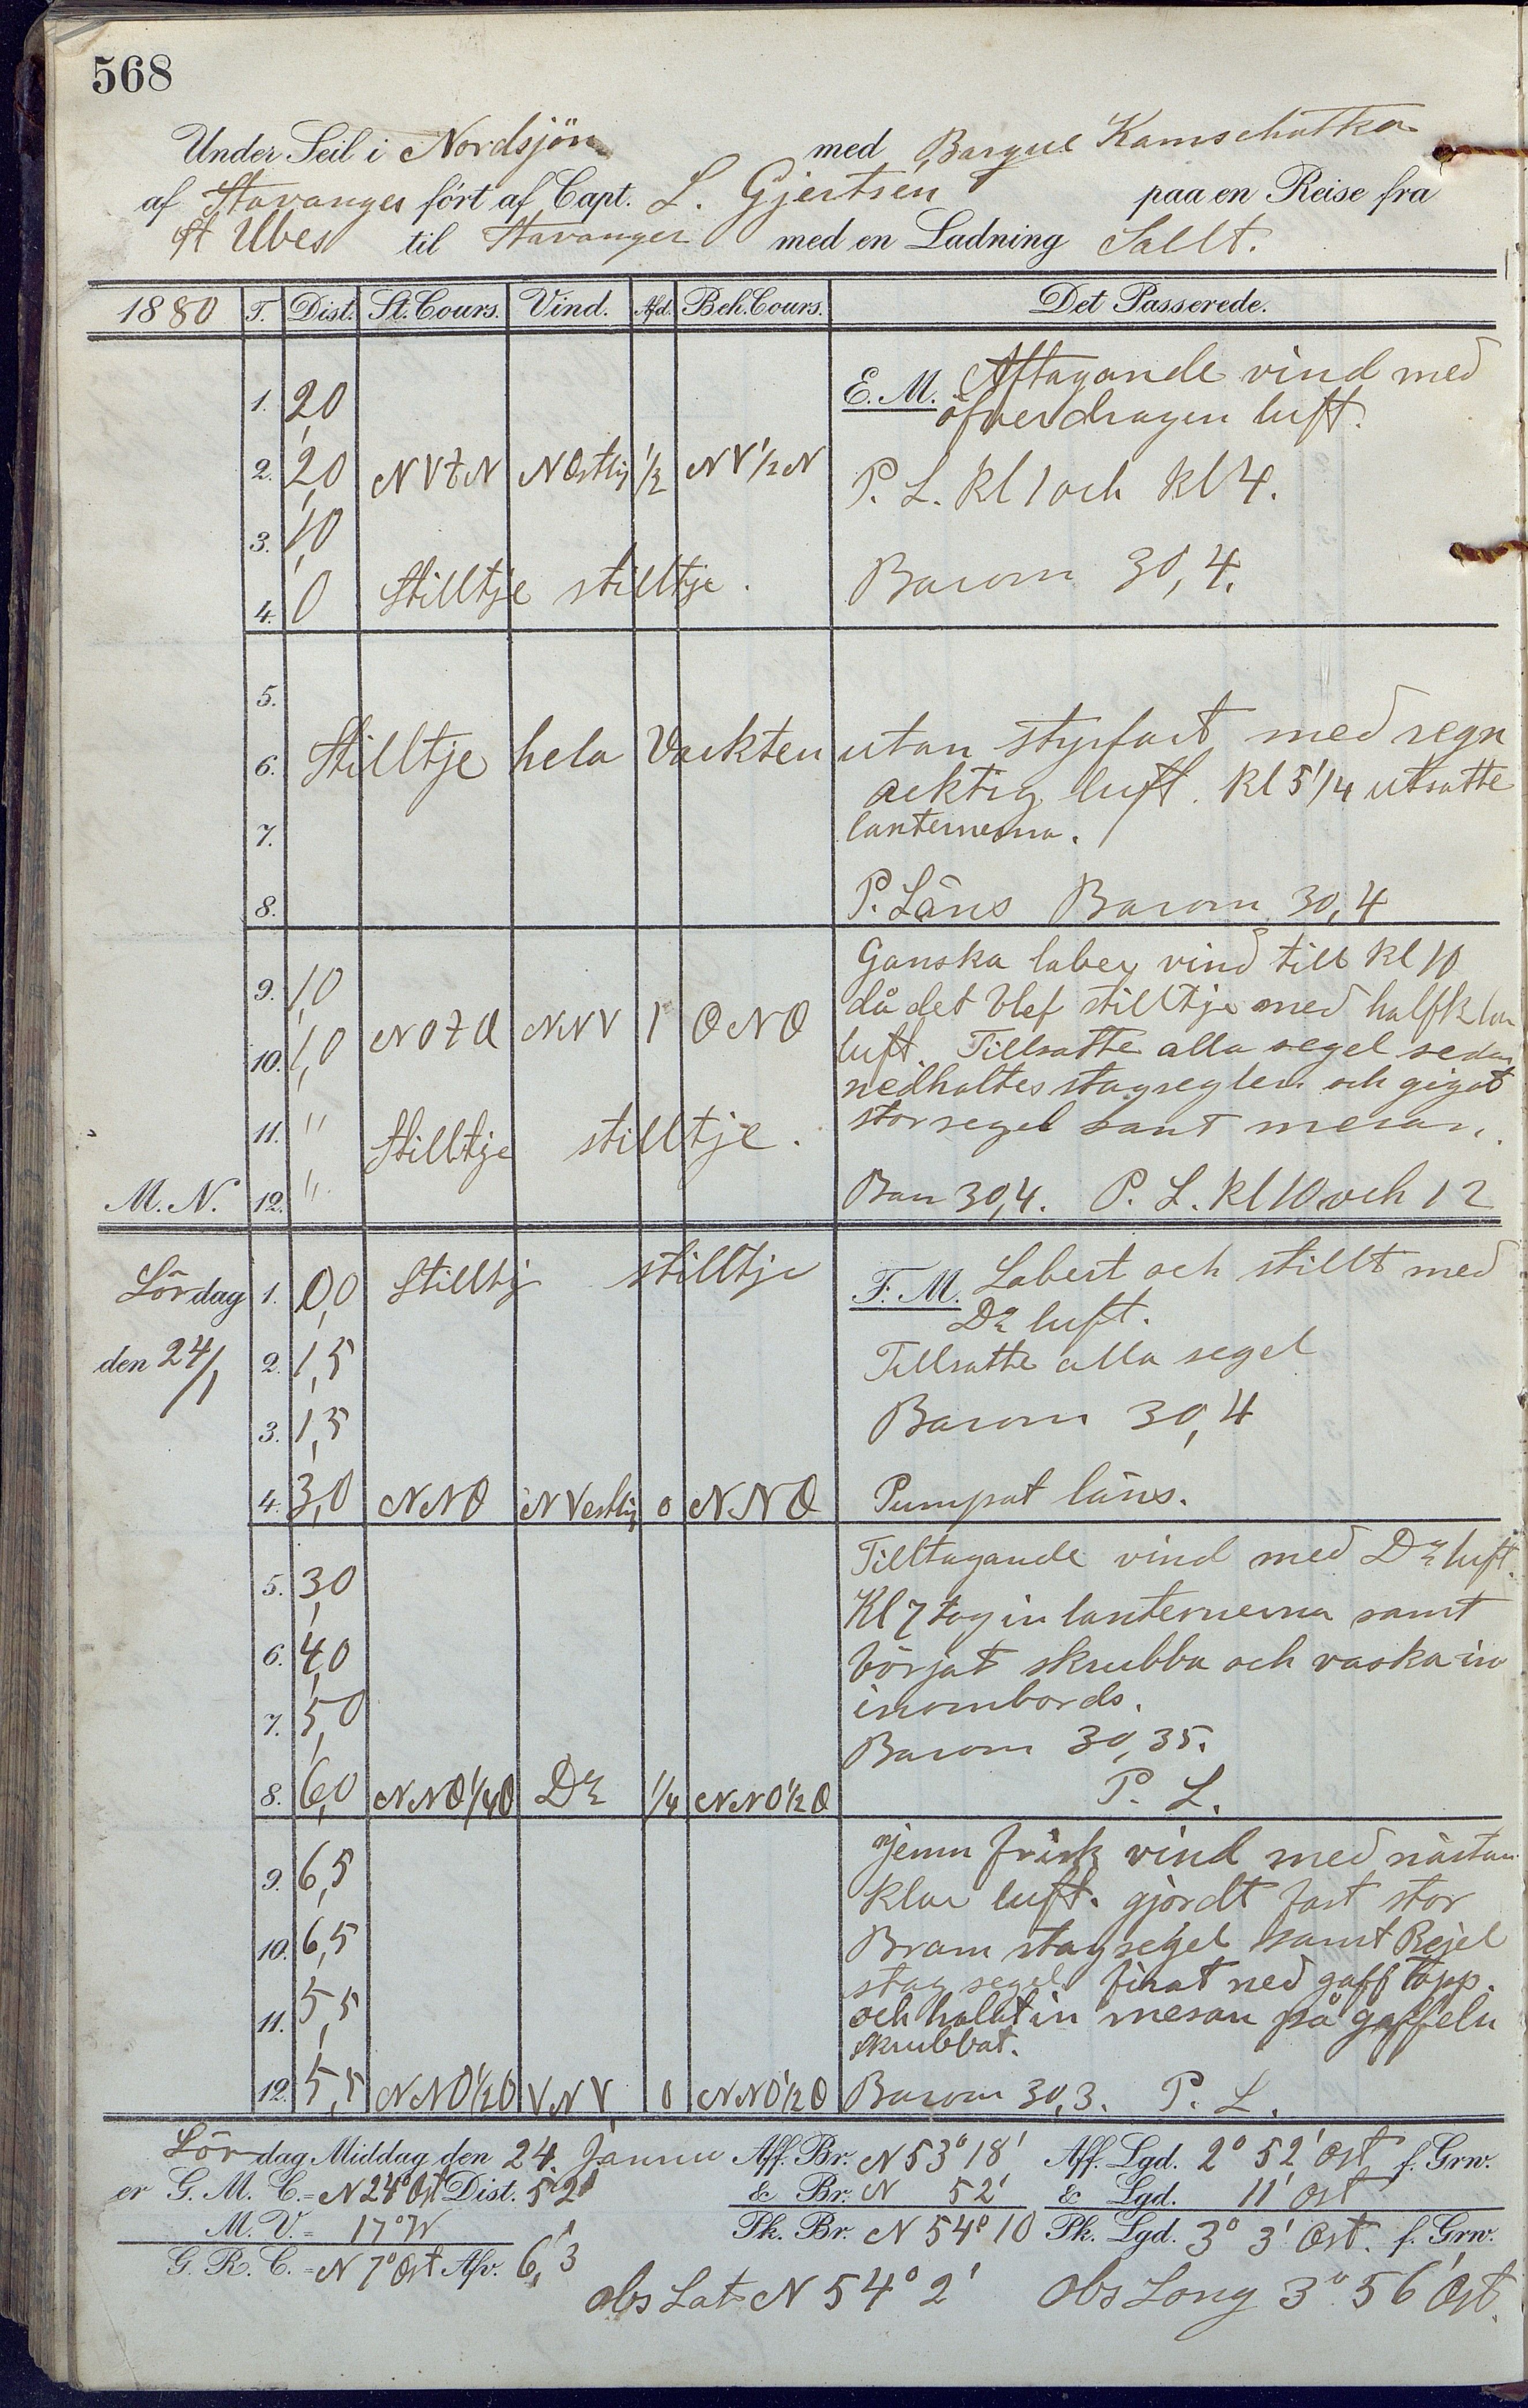 568
Under Seil i Nordsjön med Barque Kamschatka
af Stavanger fört af Capt. L. Gjertsen paa en Reise fra
St Ubes til Stavanger med en Ladning Sallt.
1880 T. Dist. St. Cours. Vind. Afd. Beh. Cours. Det Passerede.
E. M. Aftagande vind med
1. 2,0 öfverdragen luft.
2. 2,0 NVtN NOstlig 1/2 NV 1/2 N P. L. Kl 1 och Kl 4.
3. 1,0
4. 0 Stilltje stilltje. Barom 30,4.
5.
6. Stilltje hela Vackten utan styrfart med regn
acktig luft. Kl 5 1/4 utsatte
7. lanternerna.
8. P. Läns Barom 30,4
Ganska laber vind till Kl 10
9. 1,0 då det blef stilltje med halfklar
10. 1,0 NOtO NNV 1 ONO luft. Tillsatte alla segel sedan
nedhaltes stagseglen och gigat
11. " Stilltje stilltje. storsegel samt mesan.
M. N. 12. " Bar 30,4. P. L. Kl 10 och 12
Lördag 1. 0,0 Stilltj stilltje F. M. Labert och stillt med
Do luft.
den 24/1 2. 1,5 Tillsatte alla segel
3. 1,5 Barom 30,4
4. 3,0 NNO NVestlig 0 NNO Pumpat läns.
Tilltagande vind med Do luft.
5. 3,0 Kl 7 tog in lanternerna samt
6. 4,0 börjat skrubba och vaska in
7. 5,0 inombords.
Barom 30,35.
8. 6,0 NNO 1/4 O Do 1/4 NNO 1/2 O P. L.
Jemn frisk vind med nästan
9. 6,5 klar luft. gjordt fast stor
10. 6,5 Bram stagsegel samt Rejel
stag segel firat ned gafftopp.
11. 5,5 och halat in mesan på gaffeln
skrubbat.
12. 5,5 NNO 1/2 O VNV 0 NNO 1/2 O Barom 30,3. P. L.
Lördag Middag den 24. Janua Aff. Br. N 53° 18' Aff. Lgd. 2° 52' Ost f. Grw.
er G. M. C. = N 24° Ost Dist. 52' & Br. N 52' & Lgd. 11' Ost
M. V. = 17° W Pk. Br. N 54° 10 Pk. Lgd. 3° 3' Ost. f. Grw.
G. R. C. = N 7° Ost Afv. 6,3
obs Lat N 54° 2' Obs Long 3° 56' Ost.